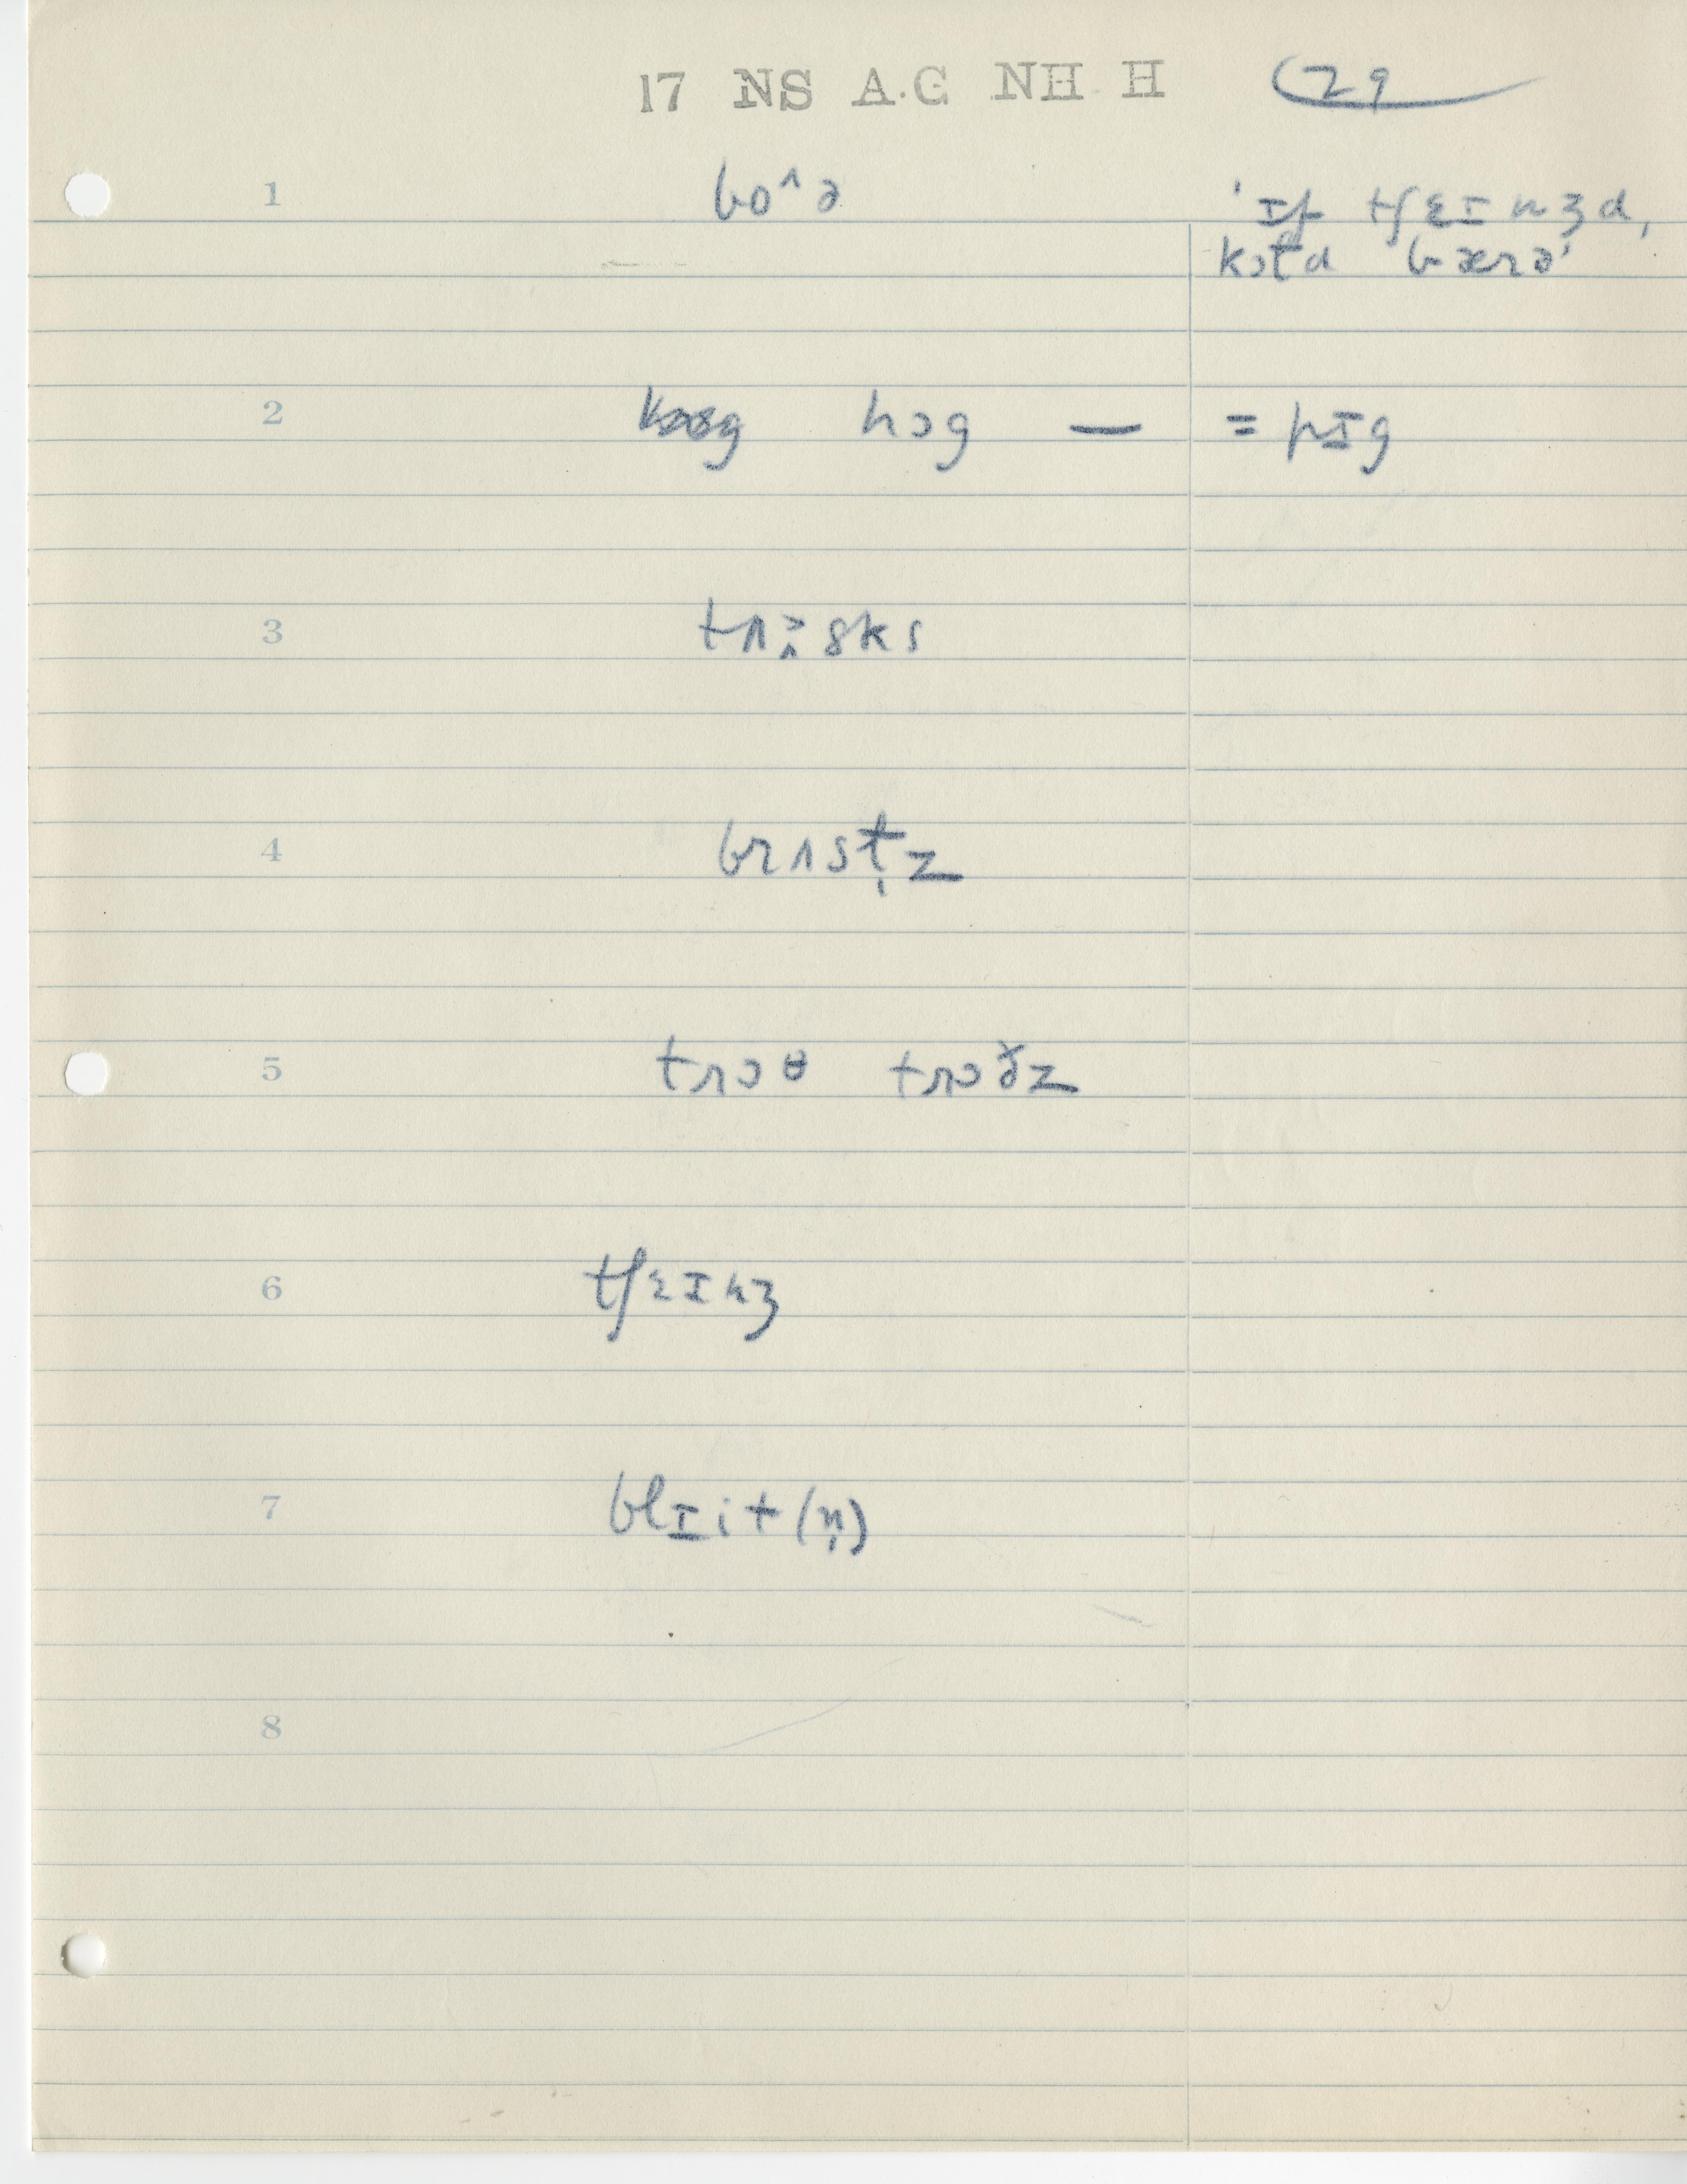 17 NS A.G NH H 29
1 bo^ə 'ɪf tʃɛɪnʒd,
kɔl̵d bærə'
2 hɔg — = pɪg
3 tʌ˃ːsks
4 brɪst̩z
5 trɔθ trɔðz
6 tʃɛɪnʒ
7 blɪit(n̩)
8